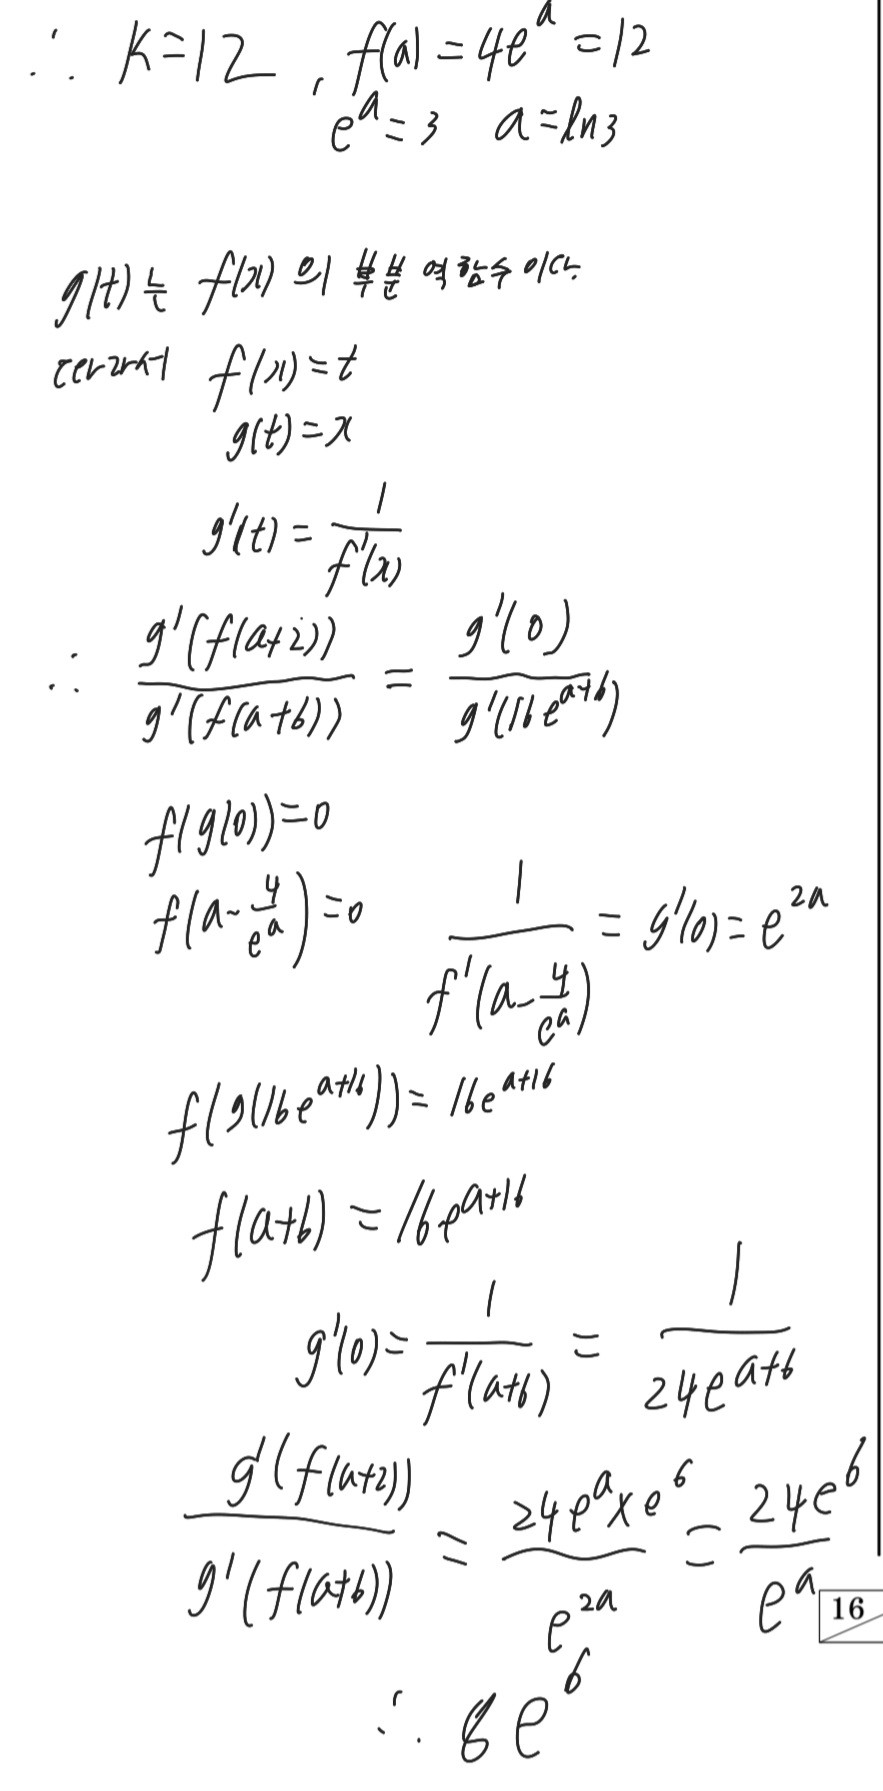 ∴ K=12, f(a)=4e^a=12
e^a=3 a=ln3
g(t)는 f(x)의 부분 역함수이다.
따라서 f(x)=t
g(t)=x
g'(t)=1/f'(x)
∴ g'(f(a+2))/g'(f(a+6)) = g'(0)/g'(16e^{a+6})
f(g(0))=0
f(a-4/e^a)=0 1/f'(a-4/e^a)=g'(0)=e^{2a}
f(g(16e^{a+16}))=16e^{a+16}
f(a+6)=16e^{a+16}
g'(0)=1/f'(a+6)=1/24e^{a+6}
g'(f(a+2))/g'(f(a+6)) = 24e^a×e^6/e^{2a} = 24e^6/e^a
16
∴ 8e^6